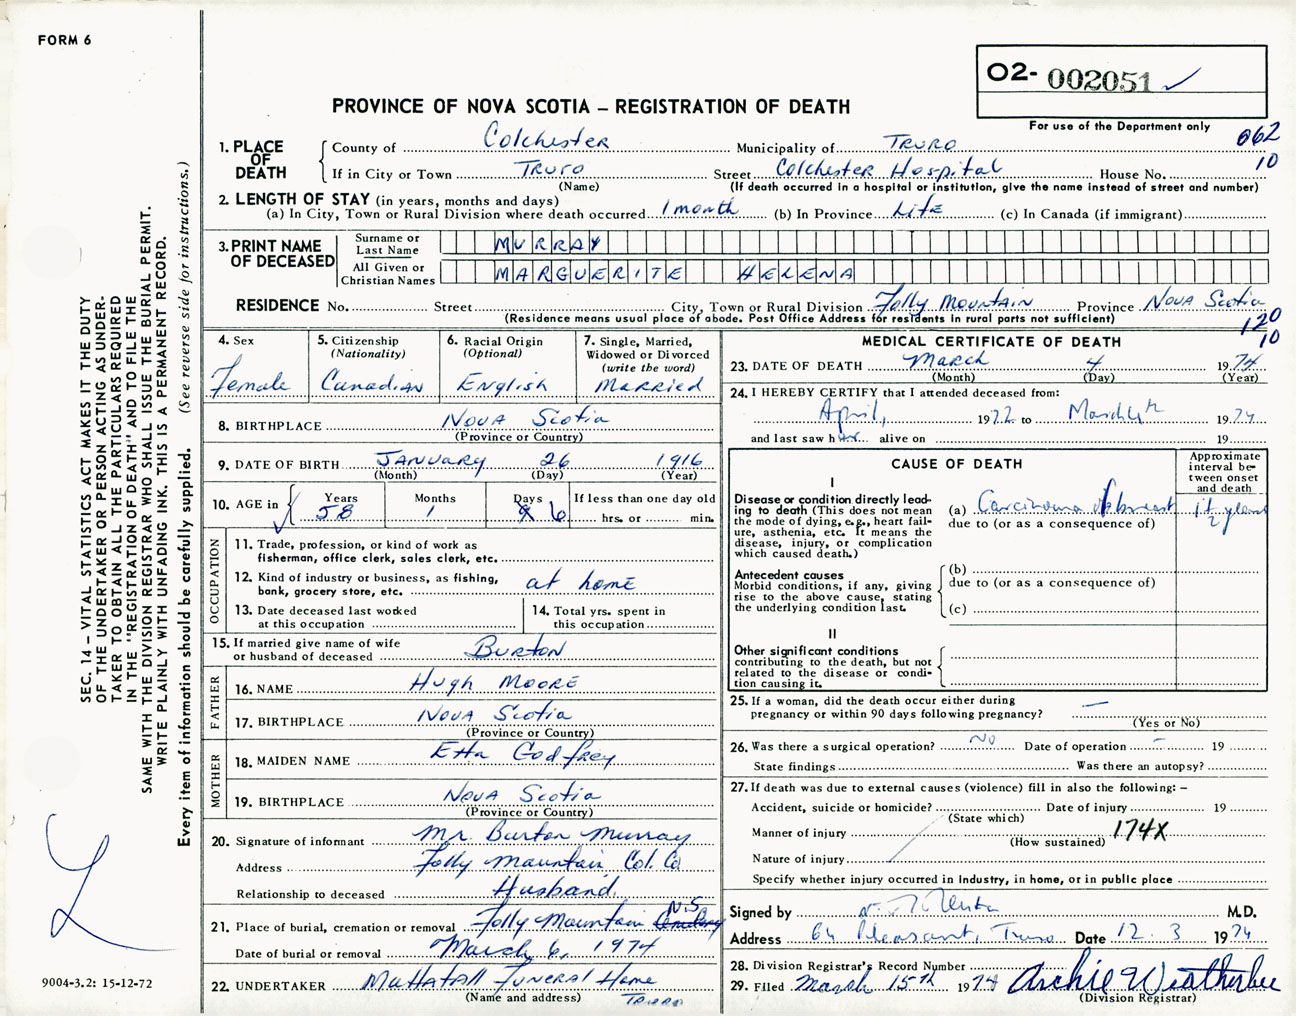 FORM 6
O2- 002051
PROVINCE OF NOVA SCOTIA – REGISTRATION OF DEATH
For use of the Department only
062
10
1. PLACE OF DEATH
County of Colchester Municipality of Truro
If in City or Town Truro Street Colchester Hospital House No.
(Name) (If death occurred in a hospital or institution, give the name instead of street and number)
2. LENGTH OF STAY (in years, months and days)
(a) In City, Town or Rural Division where death occurred 1 month (b) In Province Life (c) In Canada (if immigrant)
3. PRINT NAME OF DECEASED
Surname or Last Name MURRAY
All Given or Christian Names MARGUERITE HELENA
RESIDENCE No. Street City, Town or Rural Division Folly Mountain Province Nova Scotia
(Residence means usual place of abode. Post Office Address for residents in rural parts not sufficient)
120
10
4. Sex
Female
5. Citizenship
(Nationality)
Canadian
6. Racial Origin
(Optional)
English
7. Single, Married,
Widowed or Divorced
(write the word)
Married
8. BIRTHPLACE Nova Scotia
(Province or Country)
9. DATE OF BIRTH January 26 1916
(Month) (Day) (Year)
10. AGE in
Years Months Days If less than one day old
58 1 6 hrs. or min.
OCCUPATION
11. Trade, profession, or kind of work as
fisherman, office clerk, sales clerk, etc.
12. Kind of industry or business, as fishing,
bank, grocery store, etc. at home
13. Date deceased last worked
at this occupation
14. Total yrs. spent in
this occupation
15. If married give name of wife
or husband of deceased Burton
FATHER
16. NAME Hugh Moore
17. BIRTHPLACE Nova Scotia
(Province or Country)
MOTHER
18. MAIDEN NAME Etta Godfrey
19. BIRTHPLACE Nova Scotia
(Province or Country)
20. Signature of informant Mr. Burton Murray
Address Folly Mountain, Col. Co
Relationship to deceased Husband
21. Place of burial, cremation or removal Folly Mountain Cemetery N.S
Date of burial or removal March 6, 1974
22. UNDERTAKER Mattatall Funeral Home
(Name and address) Truro
MEDICAL CERTIFICATE OF DEATH
23. DATE OF DEATH March 4 1974
(Month) (Day) (Year)
24. I HEREBY CERTIFY that I attended deceased from:
April, 1972 to March 4th 1974
and last saw her alive on 19
CAUSE OF DEATH
Approximate
interval be-
tween onset
and death
I
Disease or condition directly lead-
ing to death (This does not mean
the mode of dying, e.g., heart fail-
ure, asthenia, etc. It means the
disease, injury, or complication
which caused death.)
(a) Carcinoma of breast
due to (or as a consequence of)
years
Antecedent causes
Morbid conditions, if any, giving
rise to the above cause, stating
the underlying condition last.
(b)
due to (or as a consequence of)
(c)
II
Other significant conditions
contributing to the death, but not
related to the disease or condi-
tion causing it.
25. If a woman, did the death occur either during
pregnancy or within 90 days following pregnancy? —
(Yes or No)
26. Was there a surgical operation? No Date of operation – 19
State findings Was there an autopsy?
27. If death was due to external causes (violence) fill in also the following: –
Accident, suicide or homicide? Date of injury 19
(State which)
Manner of injury 174X
(How sustained)
Nature of injury
Specify whether injury occurred in industry, in home, or in public place
Signed by M.D.
Address 64 Pleasant, Truro Date 12.3 1974
28. Division Registrar's Record Number
29. Filed March 15th 1974 Archie Weatherbee
(Division Registrar)
SEC. 14 – VITAL STATISTICS ACT MAKES IT THE DUTY
OF THE UNDERTAKER OR PERSON ACTING AS UNDER-
TAKER TO OBTAIN ALL THE PARTICULARS REQUIRED
IN THE "REGISTRATION OF DEATH" AND TO FILE THE
SAME WITH THE DIVISION REGISTRAR WHO SHALL ISSUE THE BURIAL PERMIT.
WRITE PLAINLY WITH UNFADING INK. THIS IS A PERMANENT RECORD.
Every item of information should be carefully supplied. (See reverse side for instructions.)
9004-3.2: 15-12-72